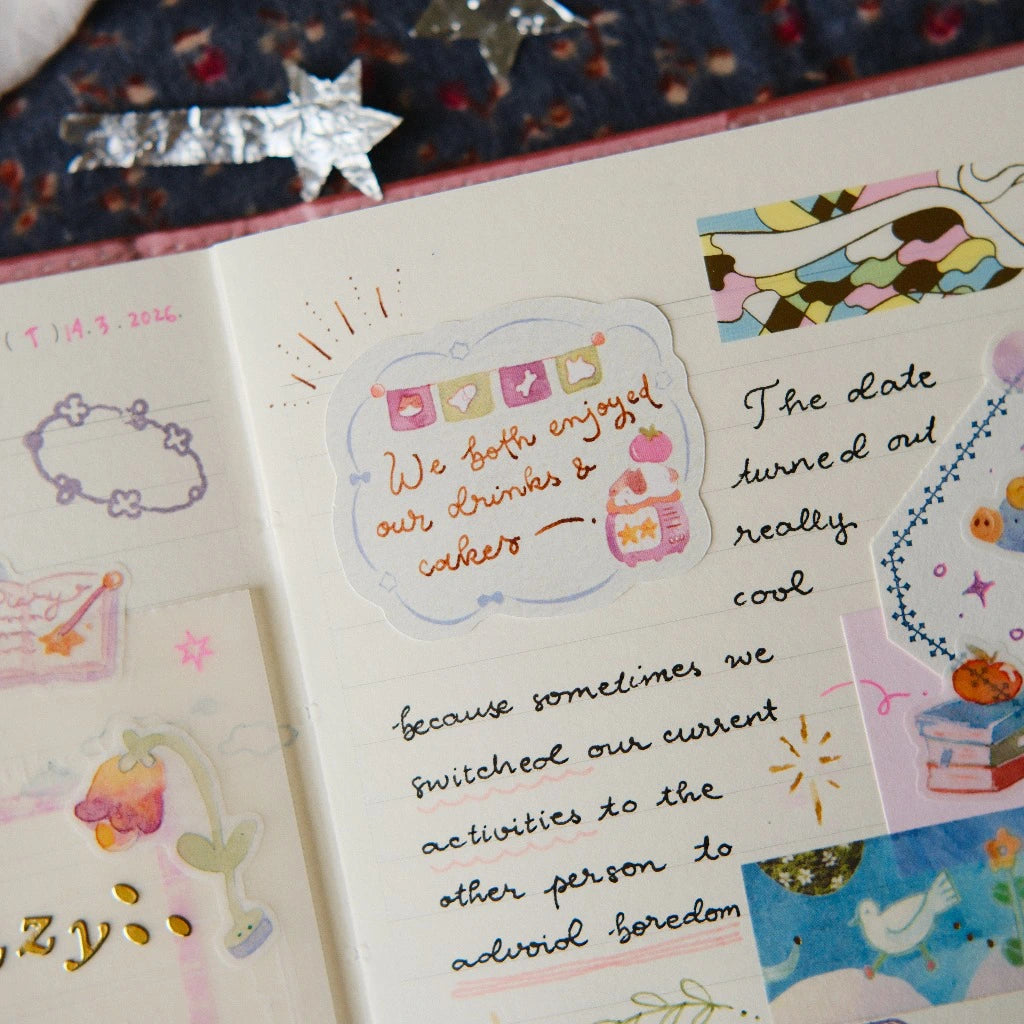 ( T ) 14.3.2026.
zy
We both enjoyed
our drinks &
cakes —.
The date
turned out
really
cool
because sometimes we
switched our current
activities to the
other person to
advoid boredom